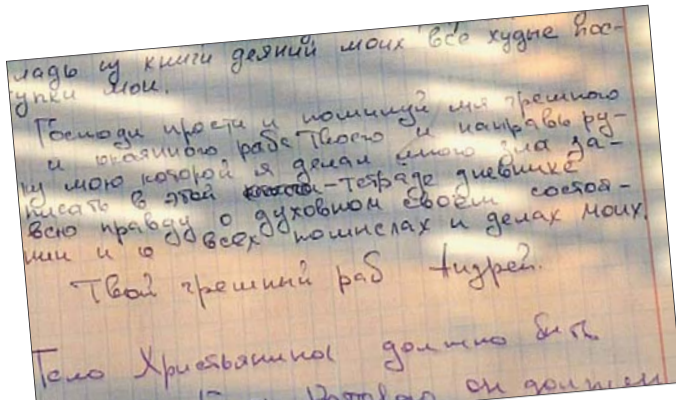 ладь из книги деяний моих все худые пос-
упки мои.
Господи прости и помилуй мя грешного
и окаянного раба Твоего и направь ру-
ку мою которой я делал много зла за-
писать в этой тетраде дневнике
всю правду о духовном своем состоя-
нии и о всех помыслах и делах моих.
Твой грешный раб Андрей.
Тело Христьянина должно быть
он должен